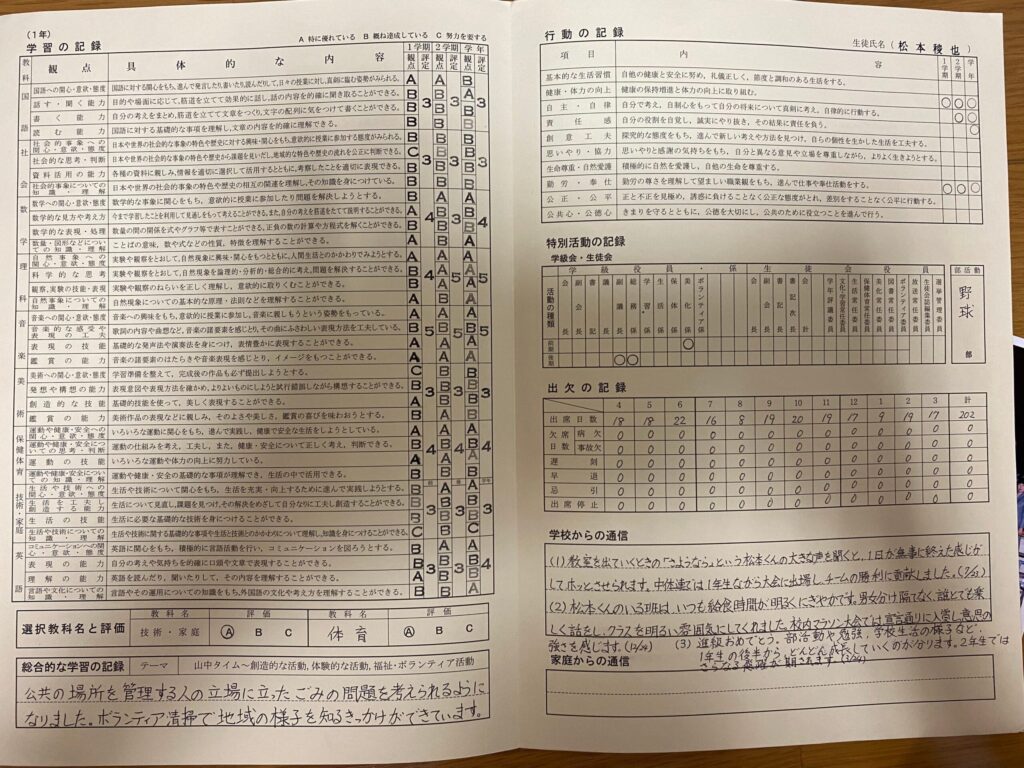 (1年)
学習の記録
A 特に優れている B 概ね達成している C 努力を要する
教科 観点 具体的な内容 1学期 2学期 学年
観点 評定 観点 評定 観点 評定
国語
国語への関心・意欲・態度 国語に対する関心をもち、進んで発言したり書いたり読んだりして、日々の授業に対し、真剣に臨む姿勢がみられる。
話す・聞く能力 目的や場面に応じて、筋道を立てて効果的に話し、話の内容を的確に聞き取ることができる。
書く能力 自分の考えをまとめ、筋道を立てて文章をつくり、文字の配列に気をつけて書くことができる。
読む能力 国語に対する基礎的な事項を理解し、文章の内容を的確に理解できる。
3 3 3
社会
社会的事象への関心・意欲・態度 日本や世界の社会的な事象の特色や歴史に対する興味・関心をもち、意欲的に授業に参加する態度がみられる。
社会的な思考・判断 日本や世界の社会的な事象の特色や歴史から課題を見いだし、地域的な特色や歴史の流れを公正に判断できる。
資料活用の能力 各種の資料に親しみ、情報を適切に選択して活用するとともに、考察したことを適切に表現できる。
社会的事象についての知識・理解 日本や世界の社会的な事象の特色や歴史の相互の関連を理解し、その知識を身につけている。
3 3 3
数学
数学への関心・意欲・態度 数学的な事象に関心をもち、意欲的に授業に参加したり問題を解決しようとする。
数学的な見方や考え方 今まで学習したことを利用して見通しをもって考えることができる。また、自分の考えを筋道をたてて説明することができる。
数学的な表現・処理 数量の間の関係を式やグラフ等で表すことができる。正負の数の計算や方程式を解くことができる。
数量・図形などについての知識・理解 ことばの意味、数や式などの性質、特徴を理解することができる。
4 3 4
理科
自然事象への関心・意欲・態度 実験や観察をとおして、自然現象に興味・関心をもつとともに、人間生活とのかかわりでみようとする。
科学的な思考 実験や観察をとおして、自然現象を論理的・分析的・総合的に考え、問題を解決することができる。
観察、実験の技能・表現 実験や観察のねらいを正しく理解し、意欲的に取りくむことができる。
自然事象についての知識・理解 自然現象についての基本的な原理・法則などを理解することができる。
4 5 5
音楽
音楽への関心・意欲・態度 音楽への興味をもち、意欲的に授業に参加し、音楽に親しもうという姿勢をもっている。
音楽的な感受や表現の工夫 歌詞の内容や曲想など、音楽の諸要素を感じとり、その曲にふさわしい表現方法を工夫している。
表現の技能 基礎的な発声法や演奏法を身につけ、表情豊かに表現することができる。
鑑賞の能力 音楽の諸要素のはたらきや音楽表現を感じとり、イメージをもつことができる。
5 5 5
美術
美術への関心・意欲・態度 学習準備を整えて、完成後の作品も必ず提出しようとする。
発想や構想の能力 表現意図や表現方法を確かめ、よりよいものにしようと試行錯誤しながら構想することができる。
創造的な技能 基礎的な技能を使って、美しく表現することができる。
鑑賞の能力 美術作品の表現などに親しみ、そのよさや美しさ、鑑賞の喜びを味わおうとする。
3 3 3
保健体育
運動や健康・安全への関心・意欲・態度 いろいろな運動に関心をもち、進んで実践し、健康で安全な生活をしようとしている。
運動や健康・安全についての思考・判断 運動の仕組みを考え、工夫し、また、健康・安全について正しく考え、判断できる。
運動の技能 いろいろな運動や体力の向上に努力している。
運動や健康・安全についての知識・理解 運動や健康・安全の基礎的な事項が理解でき、生活の中で活用できる。
4 4 4
技術・家庭
生活や技術への関心・意欲・態度 生活や技術について関心をもち、生活を充実・向上するために進んで実践しようとする。
生活を工夫し創造する能力 生活について見直し、課題を見つけ、その解決をめざして自分なりに工夫し創造することができる。
生活の技能 生活に必要な基礎的な技術を身につけることができる。
生活や技術についての知識・理解 生活や技術に関する基礎的な事項や生活と技術とのかかわりについて理解し、知識を身につけることができる。
3 3 3
英語
コミュニケーションへの関心・意欲・態度 英語に関心をもち、積極的に言語活動を行い、コミュニケーションを図ろうとする。
表現の能力 自分の考えや気持ちを的確に口頭や文章で表現することができる。
理解の能力 英語を読んだり、聞いたりして、その内容を理解することができる。
言語や文化についての知識・理解 英語やその運用についての知識をもち、外国語の文化や考え方を理解することができる。
3 3 4
選択教科名と評価
教科名 評価 教科名 評価
技術・家庭 A B C 体育 A B C
総合的な学習の記録 テーマ 山中タイム〜創造的な活動、体験的な活動、福祉・ボランティア活動
公共の場所を管理する人の立場に立ったごみの問題を考えられるように
なりました。ボランティア清掃で地域の様子を知るきっかけができています。
行動の記録
生徒氏名(松本稜也)
項目 内容 1学期 2学期 学年
基本的な生活習慣 自他の健康と安全に努め、礼儀正しく、節度と調和のある生活をする。
健康・体力の向上 健康の保持増進と体力の向上に取り組む。
自主・自律 自分で考え、自制心をもって自分の将来について真剣に考え、自律的に行動する。 ○ ○ ○
責任感 自分の役割を自覚し、誠実にやり抜き、その結果に責任を負う。 ○ ○
創意工夫 探究的な態度をもち、進んで新しい考えや方法を見つけ、自らの個性を生かした生活を工夫する。
思いやり・協力 思いやりと感謝の気持ちをもち、自分と異なる意見や立場を尊重しながら、よりよく生きようとする。
生命尊重・自然愛護 積極的に自然を愛護し、自他の生命を尊重する。
勤労・奉仕 勤労の尊さを理解して望ましい職業観をもち、進んで仕事や奉仕活動をする。 ○ ○ ○
公正・公平 正と不正を見極め、誘惑に負けることなく公正な態度がとれ、差別をすることなく公平に行動する。
公共心・公徳心 きまりを守るとともに、公徳を大切にし、公共のために役立つことを進んで行う。
特別活動の記録
学級会・生徒会
活動の種類 学級役員・係 生徒会役員 部活動
会長 副会長 書記 議長 副議長 総務係 学習係 生活係 保体係 美化係 ボランティア係
会長 副会長 書記長 書記次長 会計 学年評議委員 文化・学習常任委員 生活常任委員 保健体育常任委員 美化常任委員 図書常任委員 ボランティア委員 放送常任委員 生徒会誌編集委員 選挙管理委員
前期 ○
後期 ○ ○
野球部
出欠の記録
4 5 6 7 8 9 10 11 12 1 2 3 計
出席日数 18 18 22 16 8 19 20 19 17 9 19 17 202
欠席日数 病欠 0 0 0 0 0 0 0 0 0 0 0 0 0
事故欠 0 0 0 0 0 0 0 0 0 0 0 0 0
遅刻 0 0 0 0 0 0 0 0 0 0 0 0 0
早退 0 0 0 0 0 0 0 0 0 0 0 0 0
忌引 0 0 0 0 0 0 0 0 0 0 0 0 0
出席停止 0 0 0 0 0 0 0 0 0 0 0 0 0
学校からの通信
(1)教室を出ていくときの「さようなら」という松本くんの大きな声を聞くと、1日が無事に終えた感じが
してホッとさせられます。中体連では1年生ながら大会に出場し、チームの勝利に貢献しました。
(2)松本くんのいる班は、いつも給食時間が明るくにぎやかです。男女分け隔てなく、誰とでも楽
しく話をし、クラスを明るい雰囲気にしてくれました。校内マラソン大会では宣言通りに入賞し、意思の
強さを感じます。(12/24) (3)進級おめでとう。部活動や勉強、学校生活の様子など、
1年生の後半から、どんどん成長していくのが分ります。2年生では
さらなる飛躍が期されます。
家庭からの通信